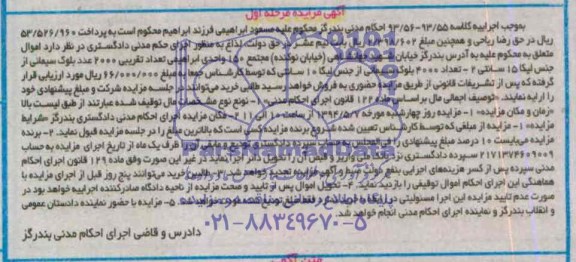 آگهی مزایده مرحله اول
بموجب اجراییه کلاسه ۹۳/۵۵-۹۳/۵۶ احکام مدنی بندرگز محکوم علیه مسعود ابراهیمی فرزند ابراهیم محکوم است به پرداخت ۵۳/۵۲۶/۹۶۰
ریال در حق رضا ریاحی و همچنین مبلغ ریال بابت نیم عشر در حق دولت لذا به منظور اجرای حکم مدنی دادگستری در نظر دارد اموال
متعلق به محکوم علیه به آدرس بندرگز خیابان (خیابان نوکنده) مجتمع ۱۵۰ واحدی ابراهیمی تعداد تقریبی ۲۰۰۰ عدد بلوک سیمانی از
جنس لیکا ۱۵ سانتی ۲- تعداد ۴۰۰۰ بلوک سیمانی از جنس لیکا ۱۰ سانتی که توسط کارشناس جمعا به مبلغ ۶۶/۰۰۰/۰۰۰ ریال مورد ارزیابی قرار
گرفته که پس از تشریفات قانونی از طریق مزایده حضوری به فروش خواهد رسید طالبی خرید می‌توانند در جلسه مزایده شرکت و مبلغ پیشنهادی خود
را ارایه نمایند. توصیف اجمالی مال بر اساس ماده ۱۲۲ قانون اجرای احکام مدنی - نوع نوع مشخصات مال توقیف شده عبارتند از طبق لیست بالا
«زمان و مکان مزایده» ۱- مزایده روز چهارشنبه مورخه ۱۳۹۴/۵/۷ از ساعت ۱۰ الی ۱۱ ۲- مکان مزایده اجرای احکام مدنی دادگستری بندرگز «شرایط
مزایده» ۱- مزایده از مبلغی که توسط کارشناس تعیین شده شروع برنده مزایده کسی است که بالاترین مبلغ را در جلسه مزایده قبول نماید. ۲- برنده
مزایده می‌بایست ۱۰ درصد مبلغ پیشنهادی را فی المجلس به حساب سپرده دادگستری تودیع و مابقی ظرف یک ماه از تاریخ اجرای مزایده به حساب
۲۱۷۱۳۷۴۶۰۹۰۰۹ سپرده دادگستری نزد بانک ملی واریز و قبض آن را تحویل دائر اجرا نماید در غیر این صورت وفق ماده ۱۲۹ قانون اجرای احکام
مدنی سپرده پس از کسر هزینه‌های اجرایی بنفع دولت ضبط و آگهی مزایده تجدید خواهد شد. ۳- طالبین خرید می‌توانند پنج روز قبل از اجرای مزایده با
هماهنگی این اجرای احکام اموال توقیفی را بازدید نماید. ۴- تحویل اموال پس از تایید و صحت مزایده از ناحیه دادگاه صادرکننده اجراییه خواهد بود در
صورت عدم تایید مزایده این اجرا مسئولیتی در ۵- مزایده با حضور نماینده دادستان عمومی
و انقلاب بندرگز و نماینده اجرای احکام مدنی انجام خواهد شد.
۰۲۱-۸۸۳۴۹۶۷۰-۵
دادرس و قاضی اجرای احکام مدنی بندرگز